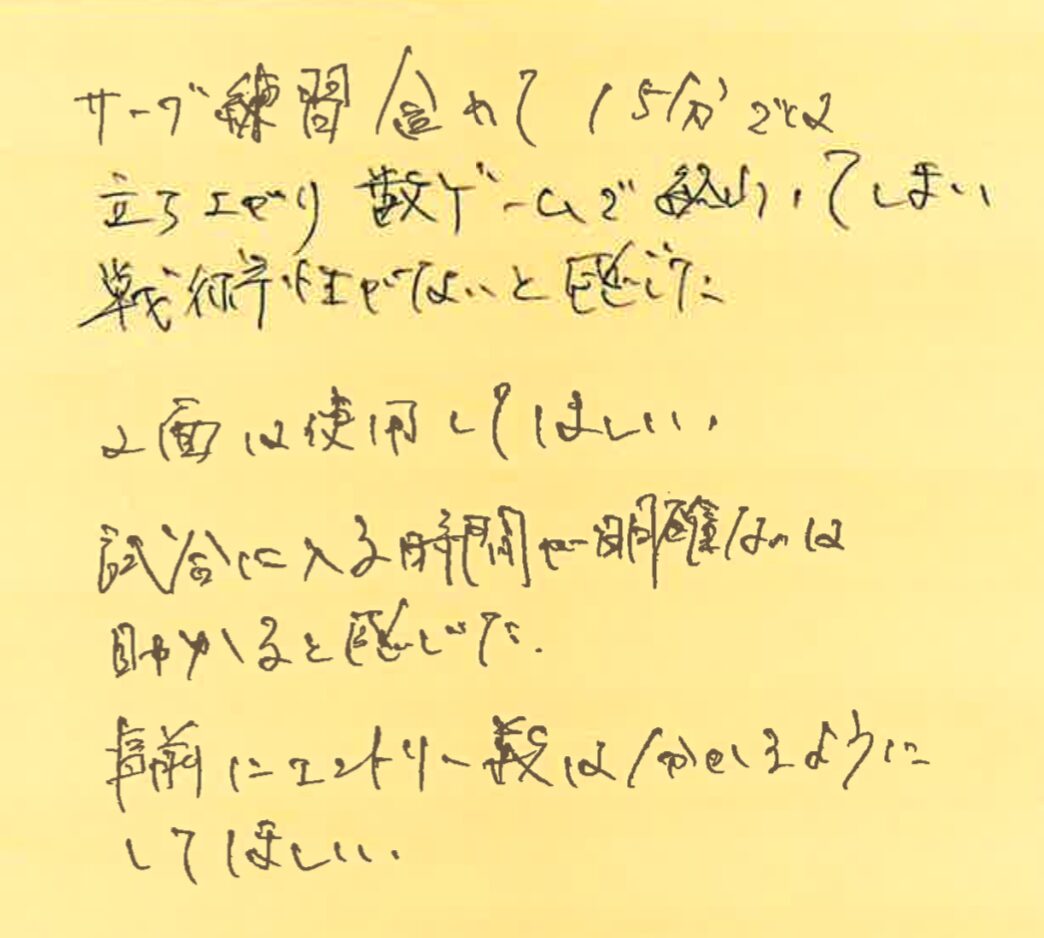 サーブ練習含めて15分では
立ち上がり数ゲームで終わってしまい
戦術性がないと感じた
2面は使用してほしい。
試合に入る時間が明確なのは
助かると感じた.
事前にエントリー数は分かるように
してほしい.